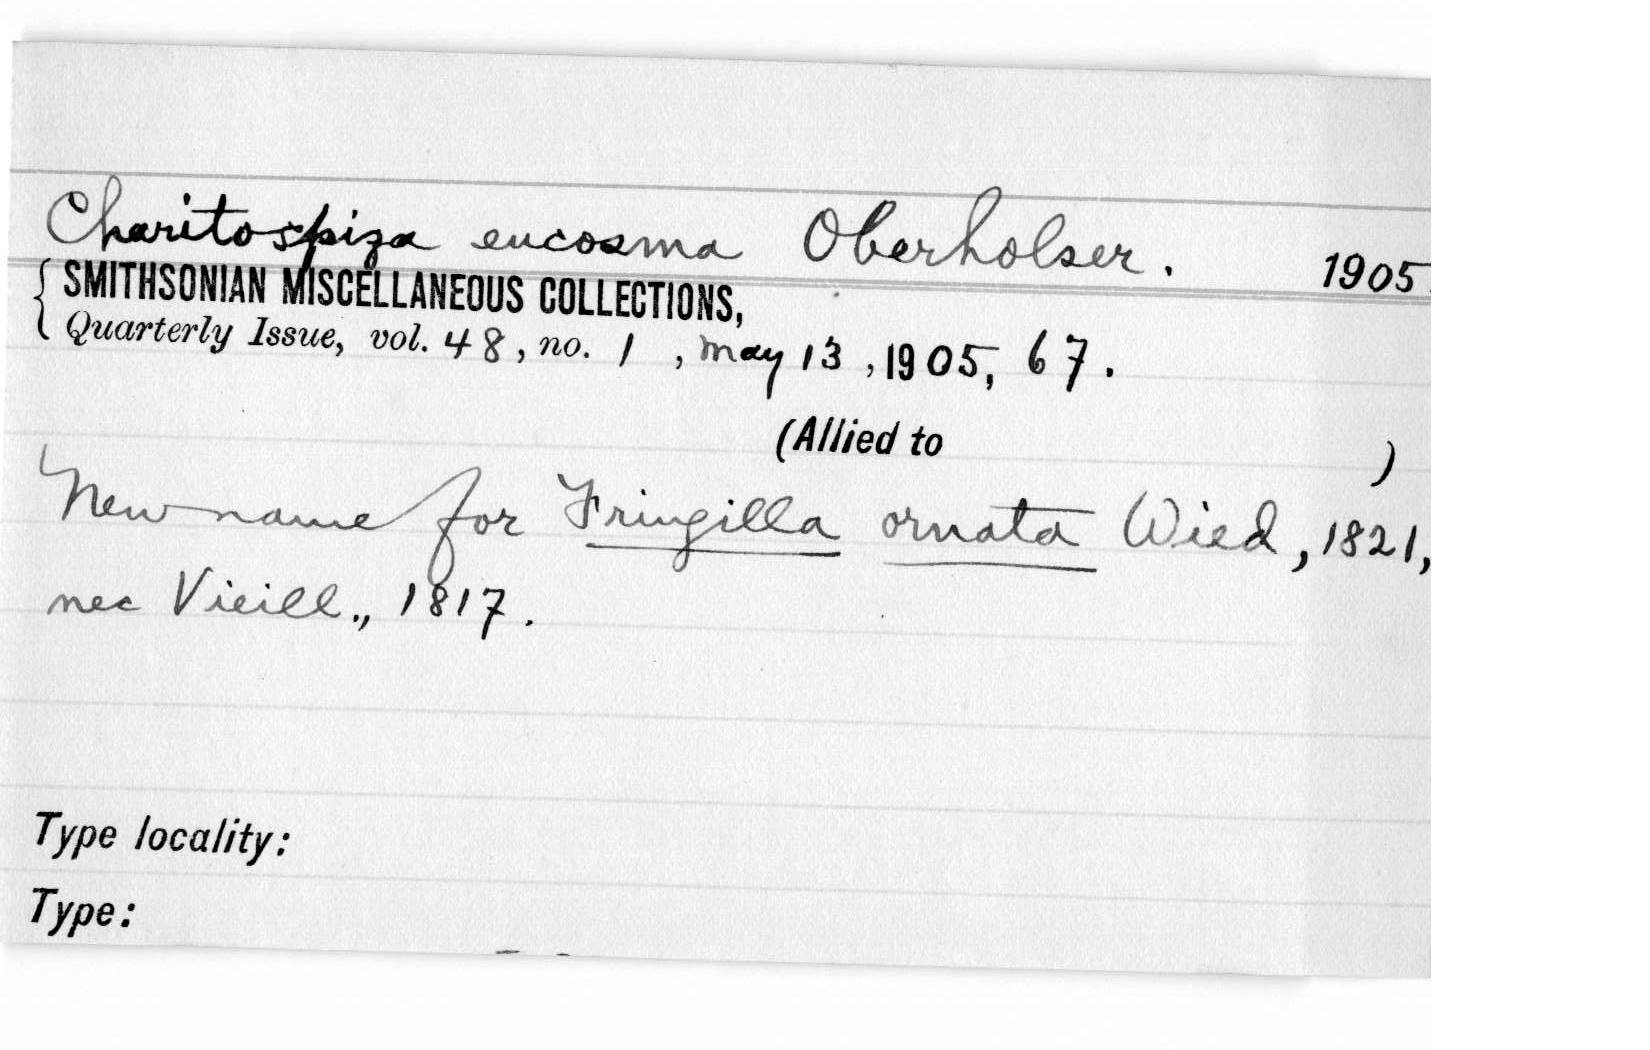 Charitospiza eucosma Oberholser. 1905.
SMITHSONIAN MISCELLANEOUS COLLECTIONS,
Quarterly Issue, vol. 48, no. 1, May 13, 1905, 67.
(Allied to )
New name for Fringilla ornata Wied, 1821,
nec Vieill., 1817.
Type locality:
Type: